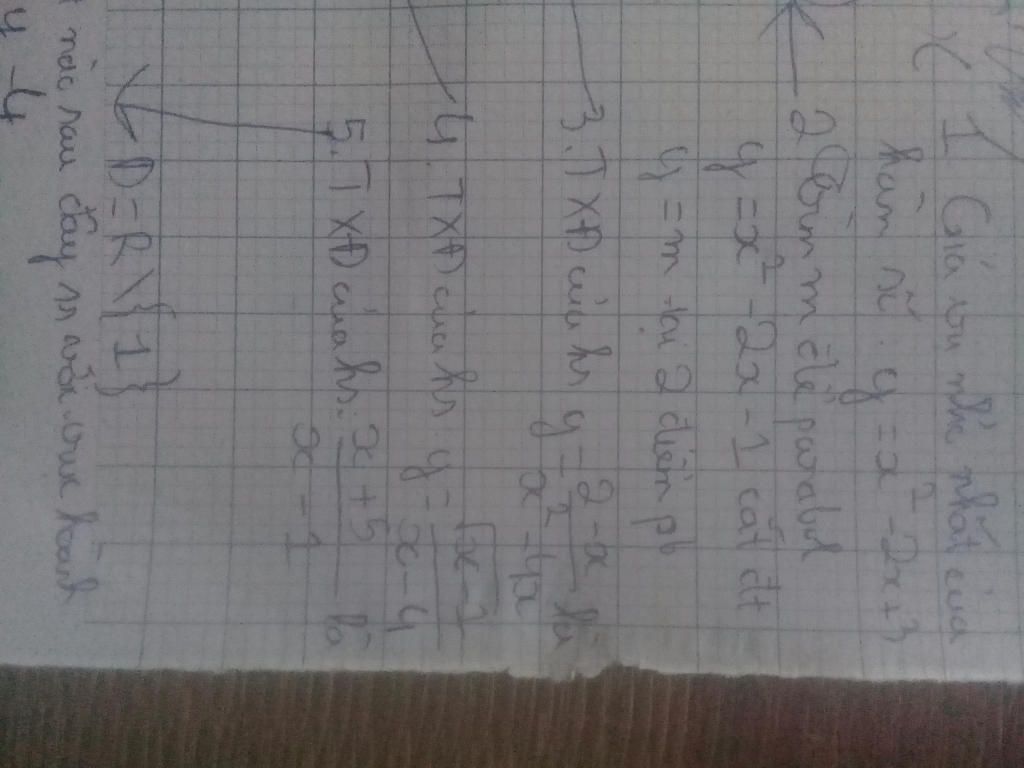 1 Giá trị nhỏ nhất của
hàm số: y = x² - 2x + 3
2 Tìm m để parabol
y = x² - 2x - 1 cắt đt
y = m tại 2 điểm pb
3. TXĐ của hs y = \frac{2-x}{x²-4x} là
4. TXĐ của hs: y = \frac{\sqrt{x-1}}{x-4}
5. TXĐ của hs: \frac{x+5}{x-1} là
D = R \ {1}
nào sau đây
y -4